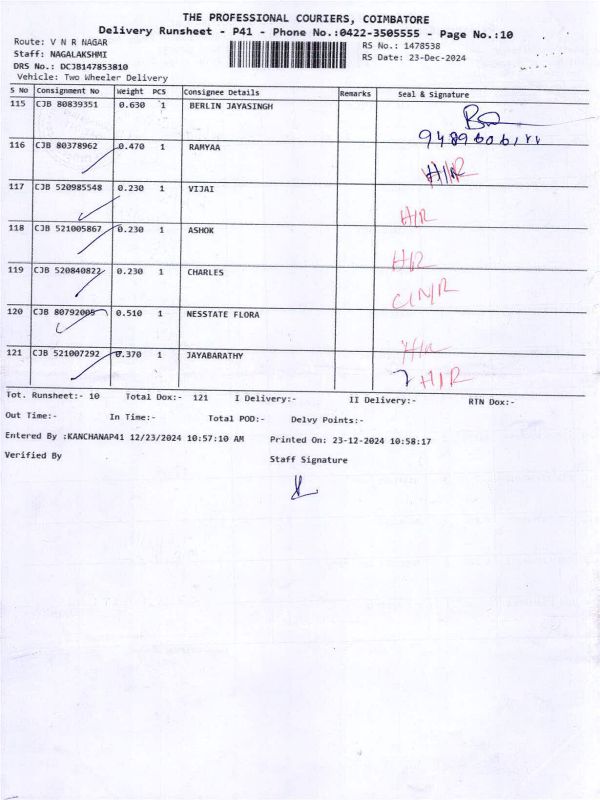 THE PROFESSIONAL COURIERS, COIMBATORE
Delivery Runsheet - P41 - Phone No.:0422-3505555 - Page No.:10
Route: V N R NAGAR RS No.: 1478538
Staff: NAGALAKSHMI RS Date: 23-Dec-2024
DRS No.: DCJB147853810
Vehicle: Two Wheeler Delivery
S No Consignment No Weight PCS Consignee Details Remarks Seal & Signature
115 CJB 80839351 0.630 1 BERLIN JAYASINGH
116 CJB 80378962 0.470 1 RAMYAA H/R
117 CJB 520985548 0.230 1 VIJAI H/R
118 CJB 521005867 0.230 1 ASHOK H/R
119 CJB 520840822 0.230 1 CHARLES C/N/R
120 CJB 80792005 0.510 1 NESSTATE FLORA H/R
121 CJB 521007292 0.370 1 JAYABARATHY H/R
Tot. Runsheet:- 10 Total Dox:- 121 I Delivery:- II Delivery:- RTN Dox:-
Out Time:- In Time:- Total POD:- Delvy Points:-
Entered By :KANCHANAP41 12/23/2024 10:57:10 AM Printed On: 23-12-2024 10:58:17
Verified By Staff Signature